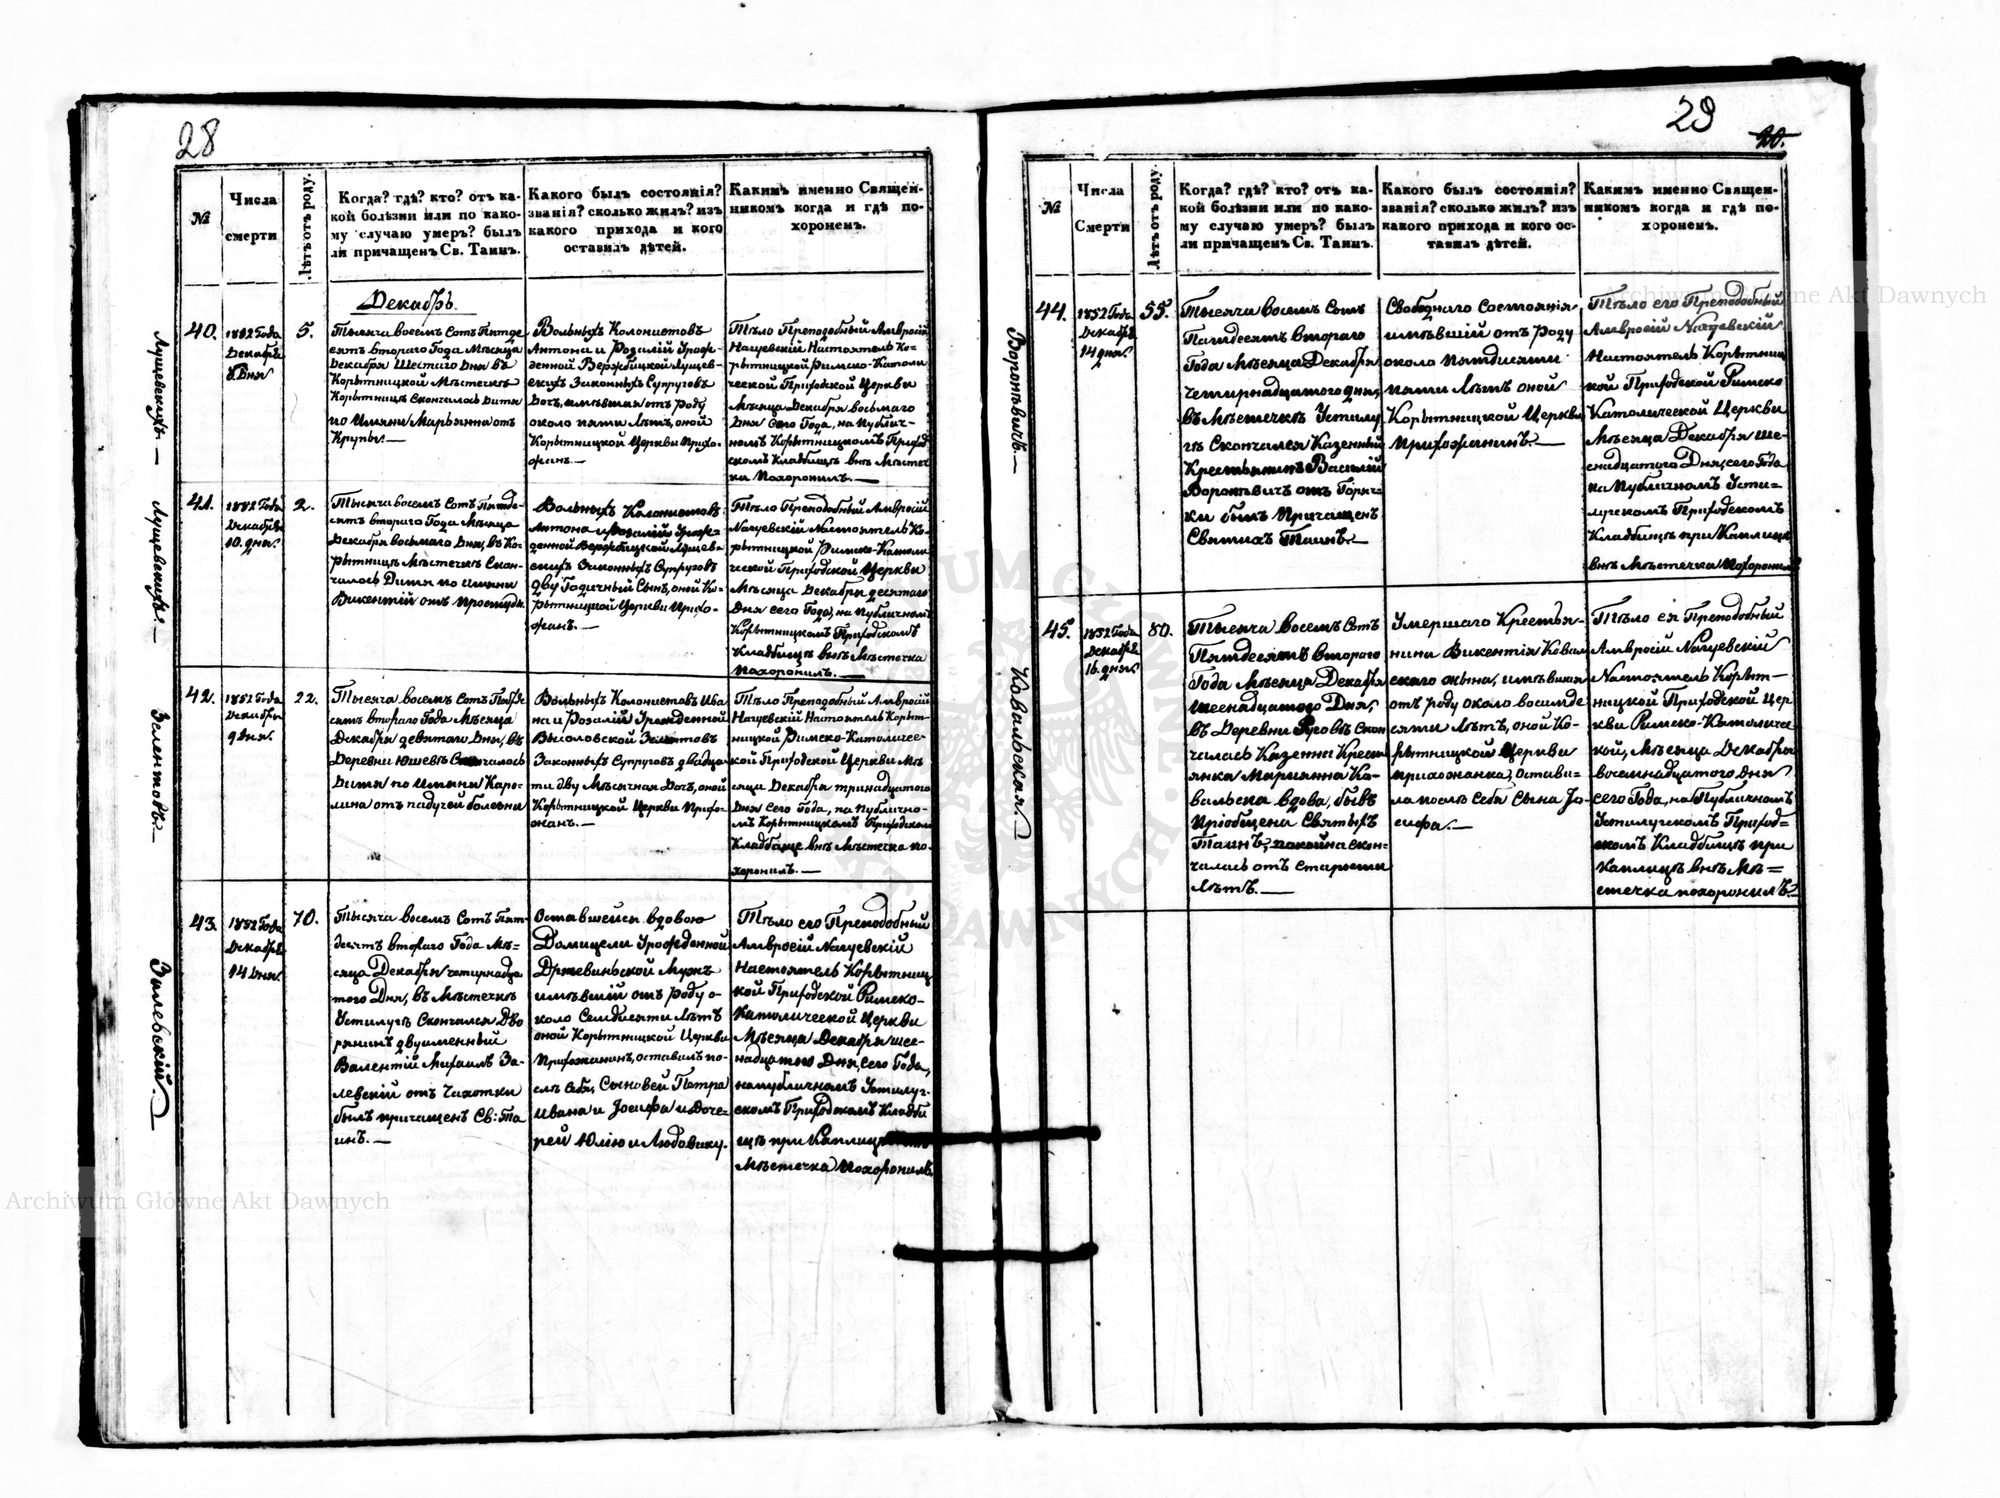 28
№
Числа
смерти
Лѣтъ отъ роду.
Когда? гдѣ? кто? отъ ка-
кой болѣзни или по како-
му случаю умеръ? былъ
ли причащенъ Св. Таинъ.
Какого былъ состоянія?
званія? сколько жилъ? изъ
какого прихода и кого
оставилъ дѣтей.
Какимъ именно Священ-
никомъ когда и гдѣ по-
хороненъ.
Декабрь.
Лущевскихъ.—
40.
1852 Года
Декабря
6. Дня
5.
Тысяча восемъ Сотъ Пятде
сятъ втораго Года Мѣсяца
Декабря Шестаго Дня въ
Корытницкой Мѣстечкѣ
Корытницѣ Скончалось Дитя
по Имяни Марьянна отъ
Крупы.—
Вольныхъ Колонистовъ
Антона и Розалій Урож-
денной Вержбицкой Лущев-
скихъ Законныхъ Супруговъ
Дочь, имѣвшая отъ роду
около пяти Лѣтъ, оной
Корытницкой Церкви Прихо-
жанъ.—
Тѣло Преподобный Амвросій
Нацевскій Настоятель Ко-
рытницкой Римско-Католи
ческой Приходской Церкви
Мѣсяца Декабря восьмаго
Дня сего Года, на Публич-
номъ Корытницкомъ Приход
скомъ Кладбищѣ внѣ Мѣстеч
ка Похоронилъ.—
Лущевскихъ.—
41.
1852 Года
Декабря
10. дня.
2.
Тысяча восемъ Сотъ Пятде-
сятъ втораго Года Мѣсяца
Декабря восьмаго Дня, въ Ко-
рытницѣ Мѣстечкѣ Скон-
чалось Дитя по имяни
Викентій отъ простуды.
Вольныхъ Колонистовъ
Антона и Розалій Урож-
денной Вержбицкой Лущев-
скихъ Законныхъ Супруговъ
дву Годичный Сынъ, оной Ко-
рытницкой Церкви Прихо-
жанъ.—
Тѣло Преподобный Амвросій
Нацевскій Настоятель Ко-
рытницкой Римско-Католи
ческой Приходской Церкви
Мѣсяца Декабря десятаго
Дня сего Года, на Публичномъ
Корытницкомъ Приходскомъ
Кладбищѣ внѣ Мѣстечка
Похоронилъ.—
Зелентовъ.—
42.
1852 Года
Декабря
9 Дня.
22.
Тысяча восемъ Сотъ Пятде
сятъ втораго Года Мѣсяца
Декабря девятаго Дня, въ
Деревни Юшевъ Скончалось
Дитя по Имяни Каро-
лина отъ падучей болезни
Вольныхъ Колонистовъ Ива
на и Розалій Урожденной
Высоловской Зелентовъ
Законныхъ Супруговъ двадца
ти дву Мѣсячная Дочь, оной
Корытницкой Церкви Прихо-
жанъ.—
Тѣло Преподобный Амвросій
Нацевскій Настоятель Корыт-
ницкой Римско-Католичес-
кой Приходской Церкви Мѣ
сяца Декабря тринадцатаго
Дня сего Года, на Публично-
мъ Корытницкомъ Приходском
Кладбище внѣ Мѣстечка по-
хоронилъ.—
Залевскій.
43.
1852 Года
Декабря
14 Дня.
70.
Тысяча восемъ Сотъ Пят-
десятъ втораго Года Мѣ=
сяца Декабря четырнадца
таго Дня, въ Мѣстечкѣ
Устилугъ Скончался Дво
рянинъ двуименный
Валентій Михаилъ За-
левскій отъ Чахотки
былъ причащенъ Св: Та
инъ.—
Оставшейсь вдовою
Домицели Урожденной
Држевиньской Мужъ
имѣвшій отъ роду о-
коло Семдисяти Лѣтъ
оной Корытницкой Церкви
Прихожанинъ, оставилъ по-
слѣ Себя, Сыновей Петра
Ивана и Іосифа и Доче=
рей Юлію и Людовику.
Тѣло его Преподобный
Амвросій Нацевскій
Настоятель Корытниц
кой Приходской Римско-
Католической Церкви
Мѣсяца Декабря шес-
надцатаго Дня, сего Года,
на публичномъ Устилуг-
скомъ Приходскомъ Кладби
щѣ при Каплицѣ
Мѣстечка Похоронилъ.
29
20.
№
Числа
Смерти
Лѣтъ отъ роду.
Когда? гдѣ? кто? отъ ка-
кой болѣзни или по како-
му случаю умеръ? былъ
ли причащенъ Св. Таинъ.
Какого былъ состоянія?
званія? сколько жилъ? изъ
какого прихода и кого ос-
тавилъ дѣтей.
Какимъ именно Священ-
никомъ когда и гдѣ по-
хороненъ.
Воронѣвичъ.—
44.
1852 Года
Декабря
14 дня.
55.
Тысяча восемъ Сотъ
Пятдесятъ втораго
Года Мѣсяца Декабря
четирнадцатаго дня,
въ Мѣстечкѣ Устилу
гѣ Скончался Казенный
Крестьянинъ Василій
Воронѣвичъ отъ Горяч-
ки былъ Причащенъ
Святихъ Таинъ.—
Свободнаго Состоянія
имѣвшій отъ Роду
около пятдисяти
пяти Лѣтъ оной
Корытницкой Церкви
Прихожанинъ.—
Тѣло его Преподобный
Амвросій Нацевскій
Настоятель Корытниц
кой Приходской Римско
Католической Церкви
Мѣсяца Декабря шес-
надцатаго Дня, сего Года
на Публичномъ Усти-
лугскомъ Приходскомъ
Кладбищѣ при Каплицѣ
внѣ Мѣстечка Похоронилъ
Ковальская.
45.
1852 Года
Декабря
16. дня.
80.
Тысяча восемъ Сотъ
Пятдесятъ втораго
Года Мѣсяца Декабря
шеснадцатаго Дня,
въ Деревни Руовъ Скон
чалась Казенна Крест
янка Марианна Ко-
вальска вдова, бывъ
Пріобщена Святыхъ
Таинъ, покойна скон-
чалась отъ старости
Лѣтъ.—
Умершаго Крестья-
нина Викентія Коваль
скаго жына, имѣвшая
отъ роду около восимде
сяти Лѣтъ, оной Ко-
рытницкой Церкви
прихожанка, остави-
ла послѣ себя Сына Іо-
сифа.—
Тѣло ея Преподобный
Амвросій Нацевскій
Настоятель Корыт-
ницкой Приходской Цер
кви Римско-Католичес
кой, Мѣсяца Декабря
восемнадцатаго Дня
сего Года, на Публичномъ
Устилугскомъ Приход=
скомъ Кладбищѣ при
Каплицѣ внѣ Мѣ=
стечка похоронилъ.
Archiwum Główne Akt Dawnych
Archiwum Główne Akt Dawnych